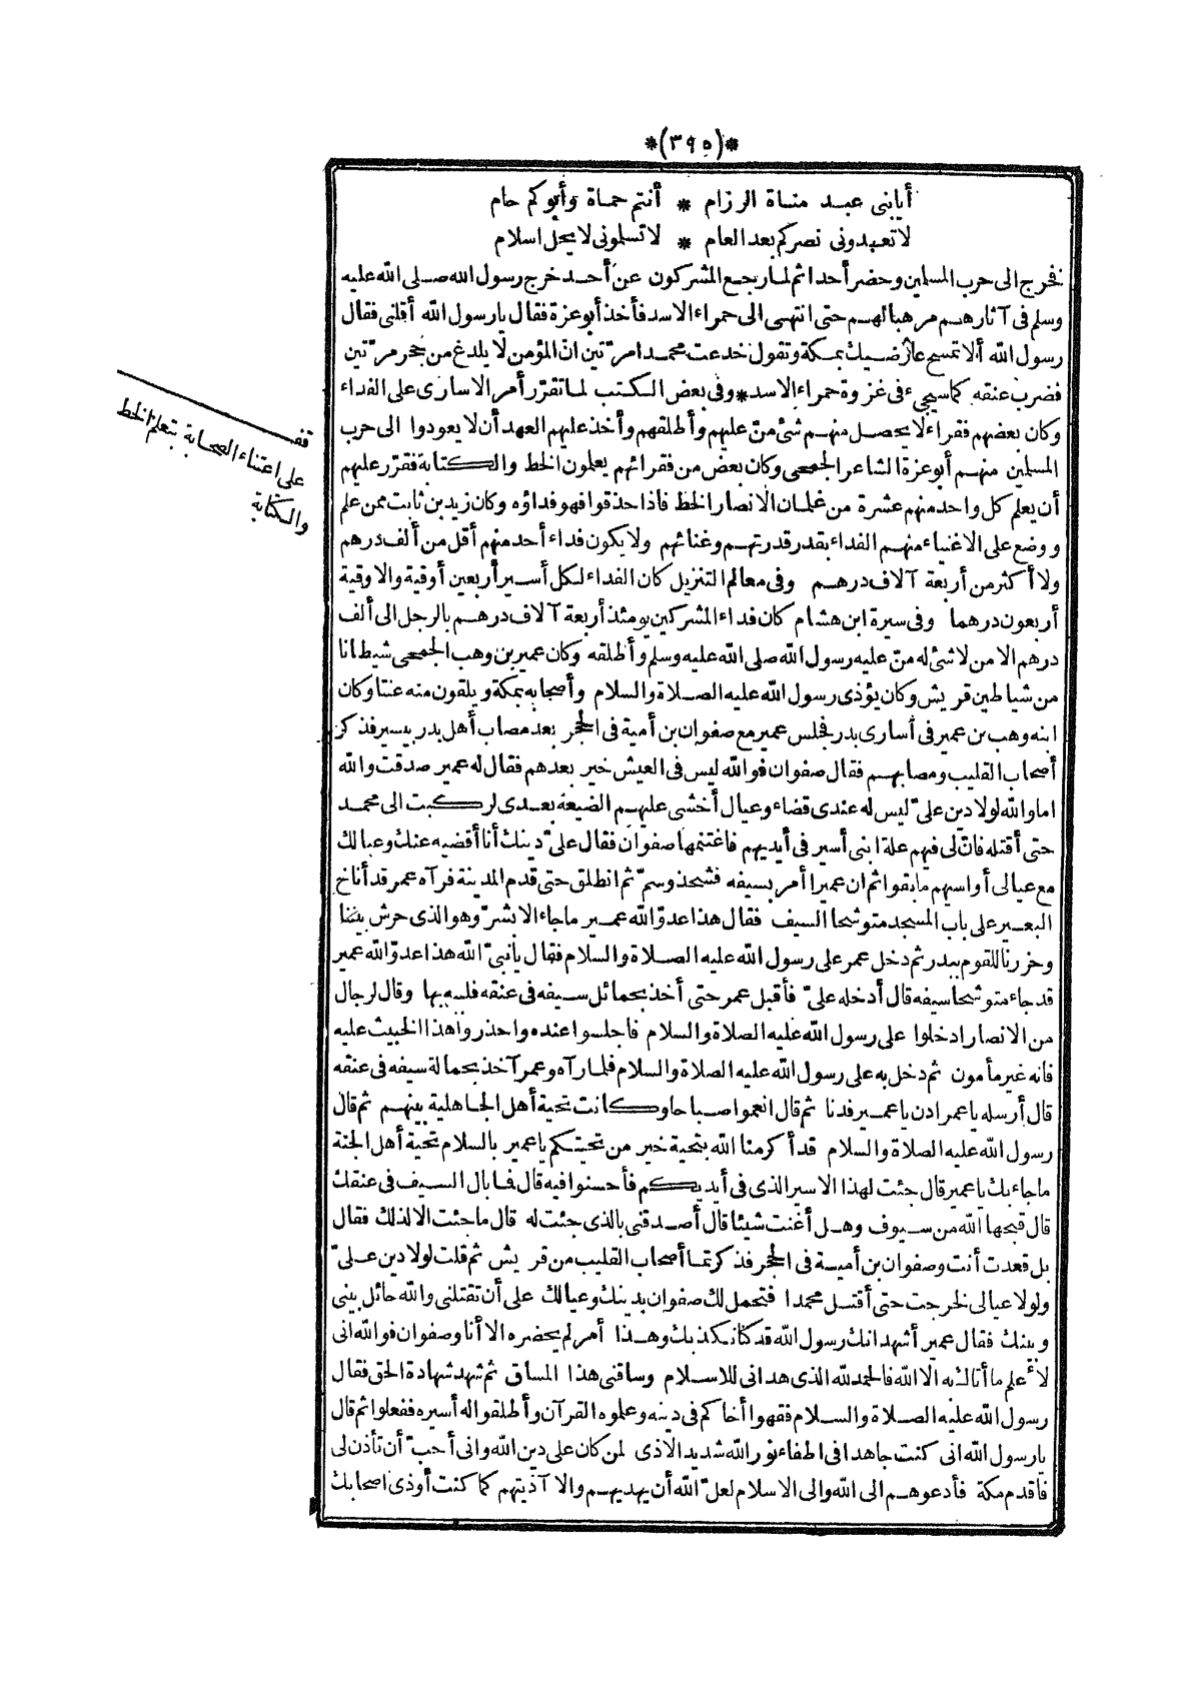 *(٣٩٥)*
أيابنى عبد مناة الرزام * أنتم حماة وأبوكم حام
لا تعدونى نصركم بعد العام * لا تسلمونى لا يحل اسلام
فخرج الى حرب المسلمين وحضر أحدا ثم لما رجع المشركون عن أحد خرج رسول الله صلى الله عليه
وسلم فى آثارهم مرهبا لهم حتى انتهى الى حمراء الاسد فأخذ أبو عزة فقال يا رسول الله أقلنى فقال
رسول الله ألا تمسح عارضيك بمكة وتقول خدعت محمدا مرّتين انّ المؤمن لا يلدغ من جحر مرّتين
فضرب عنقه كما سيجىء فى غزوة حمراء الاسد * وفى بعض الكتب لما تقرّر أمر الاسارى على الفداء
وكان بعضهم فقراء لا يحصل منهم شئ منّ عليهم وأطلقهم وأخذ عليهم العهد أن لا يعودوا الى حرب
المسلمين منهم أبو عزة الشاعر الجمحى وكان بعض من فقرائهم يعلمون الخط والكتابة فقرّر عليهم
أن يعلم كل واحد منهم عشرة من غلمان الانصار الخط فاذا حذقوا فهو فداؤه وكان زيد بن ثابت ممن علم
ووضع على الاغنياء منهم الفداء بقدر قدرتهم وغنائهم ولا يكون فداء أحد منهم أقل من ألف درهم
ولا أكثر من أربعة آلاف درهم وفى معالم التنزيل كان الفداء لكل أسير أربعين أوقية والاوقية
أربعون درهما وفى سيرة ابن هشام كان فداء المشركين يومئذ أربعة آلاف درهم بالرجل الى ألف
درهم الا من لا شئ له منّ عليه رسول الله صلى الله عليه وسلم وأطلقه وكان عمير بن وهب الجمحى شيطانا
من شياطين قريش وكان يؤذى رسول الله عليه الصلاة والسلام وأصحابه بمكة ويلقون منه عنتا وكان
ابنه وهب بن عمير فى أسارى بدر فجلس عمير مع صفوان بن أمية فى الحجر بعد مصاب أهل بدر بيسير فذكر
أصحاب القليب ومصابهم فقال صفوان فو الله ليس فى العيش خير بعدهم فقال له عمير صدقت والله
اما والله لولا دين علىّ ليس له عندى قضاء وعيال أخشى عليهم الضيعة بعدى لركبت الى محمد
حتى أقتله فانّ لى فيهم علة ابنى أسير فى أيديهم فاغتنمها صفوان فقال علىّ دينك أنا أقضيه عنك وعيالك
مع عيالى أواسيهم ما بقوا ثم ان عميرا أمر بسيفه فشحذ وسمّ ثم انطلق حتى قدم المدينة فرآه عمر قد أناخ
البعير على باب المسجد متوشحا السيف فقال هذا عدوّ الله عمير ما جاء الا بشرّ وهو الذى حرش بيننا
وحزرنا للقوم ببدر ثم دخل عمر على رسول الله عليه الصلاة والسلام فقال يا نبىّ الله هذا عدوّ الله عمير
قد جاء متوشحا سيفه قال أدخله علىّ فأقبل عمر حتى أخذ بحمائل سيفه فى عنقه فلببه بها وقال لرجال
من الانصار ادخلوا على رسول الله عليه الصلاة والسلام فاجلسوا عنده واحذروا هذا الخبيث عليه
فانه غير مأمون ثم دخل به على رسول الله عليه الصلاة والسلام فلما رآه وعمر آخذ بحمالة سيفه فى عنقه
قال أرسله يا عمر ادن يا عمير فدنا ثم قال انعموا صباحا وكانت تحية أهل الجاهلية بينهم ثم قال
رسول الله عليه الصلاة والسلام قد أكرمنا الله بتحية خير من تحيتكم يا عمير بالسلام تحية أهل الجنة
ما جاء بك يا عمير قال جئت لهذا الاسير الذى فى أيديكم فأحسنوا فيه قال فما بال السيف فى عنقك
قال قبحها الله من سيوف وهل أغنت شيئا قال أصدقنى بالذى جئت له قال ما جئت الا لذلك فقال
بل قعدت أنت وصفوان بن أمية فى الحجر فذكرتما أصحاب القليب من قريش ثم قلت لولا دين علىّ
ولولا عيالى لخرجت حتى أقتل محمدا فتحمل لك صفوان بدينك وعيالك على أن تقتلنى والله حائل بينى
وبينك فقال عمير أشهد انك رسول الله قد كنا نكذبك وهذا أمر لم يحضره الا أنا وصفوان فو الله انى
لأعلم ما أتاك به الا الله فالحمد لله الذى هدانى للاسلام وساقنى هذا المساق ثم شهد شهادة الحق فقال
رسول الله عليه الصلاة والسلام فقهوا أخاكم فى دينه وعلموه القرآن وأطلقوا له أسيره ففعلوا ثم قال
يا رسول الله انى كنت جاهدا فى اطفاء نور الله شديد الاذى لمن كان على دين الله وانى أحبّ أن تأذن لى
فاقدم مكة فأدعوهم الى الله والى الاسلام لعلّ الله أن يهديهم والا آذيتهم كما كنت أوذى اصحابك
قف
على اعتناء الصحابة بتعلم الخط
والكتابة